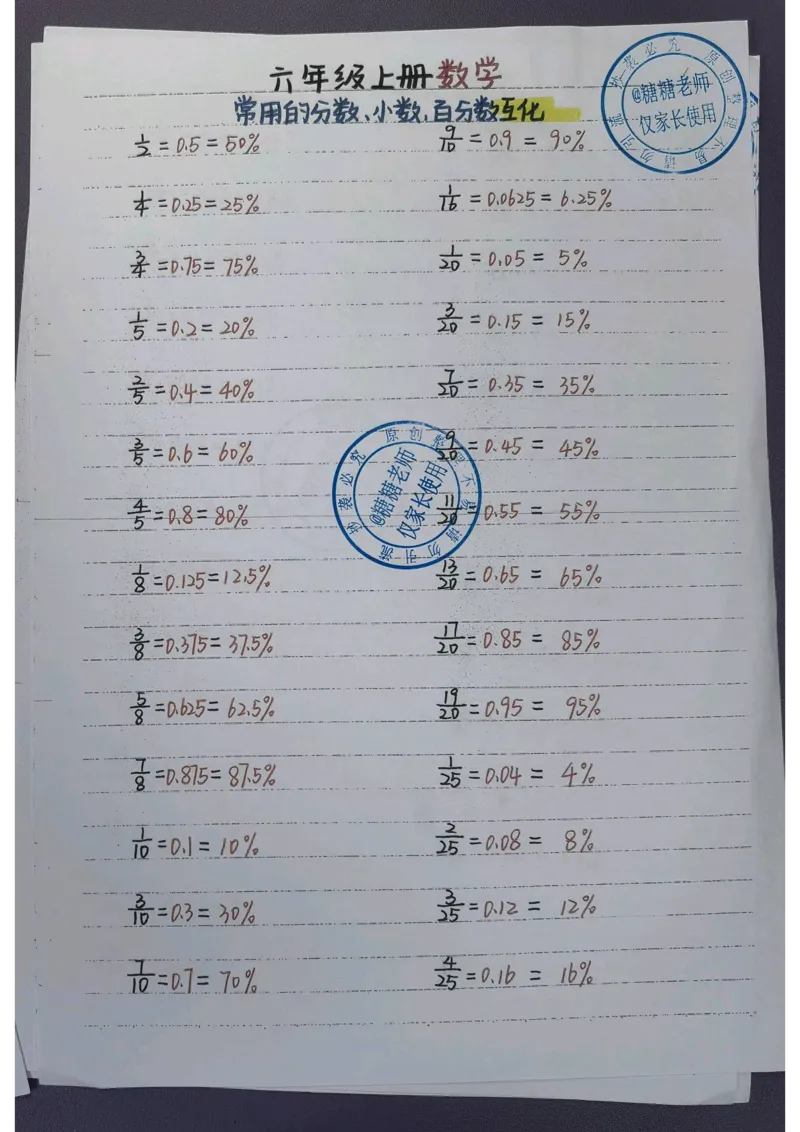 六年级上册数学
常用的分数、小数,百分数互化
1/2 = 0.5 = 50%
1/4 = 0.25 = 25%
3/4 = 0.75 = 75%
1/5 = 0.2 = 20%
2/5 = 0.4 = 40%
3/5 = 0.6 = 60%
4/5 = 0.8 = 80%
1/8 = 0.125 = 12.5%
3/8 = 0.375 = 37.5%
5/8 = 0.625 = 62.5%
7/8 = 0.875 = 87.5%
1/10 = 0.1 = 10%
3/10 = 0.3 = 30%
7/10 = 0.7 = 70%
9/10 = 0.9 = 90%
1/16 = 0.0625 = 6.25%
1/20 = 0.05 = 5%
3/20 = 0.15 = 15%
7/20 = 0.35 = 35%
9/20 = 0.45 = 45%
11/20 = 0.55 = 55%
13/20 = 0.65 = 65%
17/20 = 0.85 = 85%
19/20 = 0.95 = 95%
1/25 = 0.04 = 4%
2/25 = 0.08 = 8%
3/25 = 0.12 = 12%
4/25 = 0.16 = 16%
@糖糖老师
仅家长使用
原创整理不易请勿引流抄袭必究
@糖糖老师
仅家长使用
原创整理不易请勿引流抄袭必究